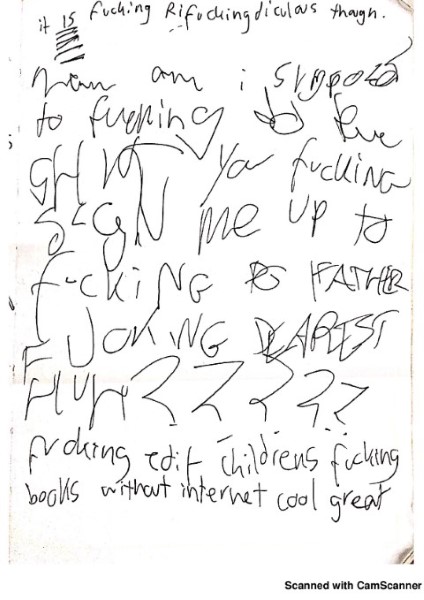 it is fucking Rifuckingdiculous though.
am i supposed
to fucking do the
you fucking
SIGN me up to
fucking FATHER
FUCKING DEAREST
HUH?????
fucking edit childrens fucking
books without internet cool great
Scanned with CamScanner